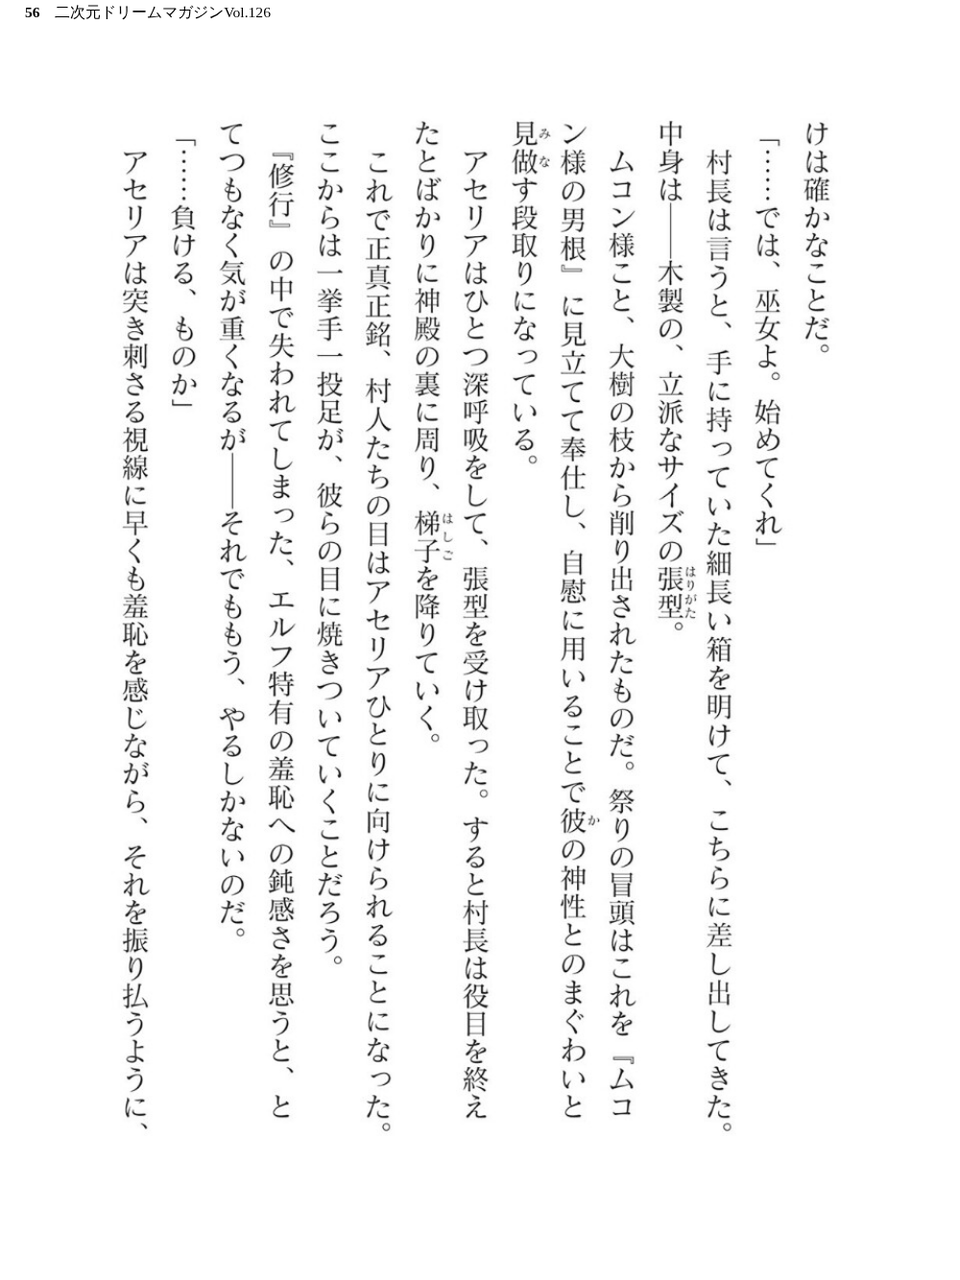 56 二次元ドリームマガジンVol.126
けは確かなことだ。
「……では、巫女よ。始めてくれ」
村長は言うと、手に持っていた細長い箱を明けて、こちらに差し出してきた。
中身は――木製の、立派なサイズの張型。
はりがた
ムコン様こと、大樹の枝から削り出されたものだ。祭りの冒頭はこれを『ムコ
ン様の男根』に見立てて奉仕し、自慰に用いることで彼の神性とのまぐわいと
か
見做す段取りになっている。
みな
アセリアはひとつ深呼吸をして、張型を受け取った。すると村長は役目を終え
たとばかりに神殿の裏に周り、梯子を降りていく。
はしご
これで正真正銘、村人たちの目はアセリアひとりに向けられることになった。
ここからは一挙手一投足が、彼らの目に焼きついていくことだろう。
『修行』の中で失われてしまった、エルフ特有の羞恥への鈍感さを思うと、と
てつもなく気が重くなるが――それでももう、やるしかないのだ。
「……負ける、ものか」
アセリアは突き刺さる視線に早くも羞恥を感じながら、それを振り払うように、